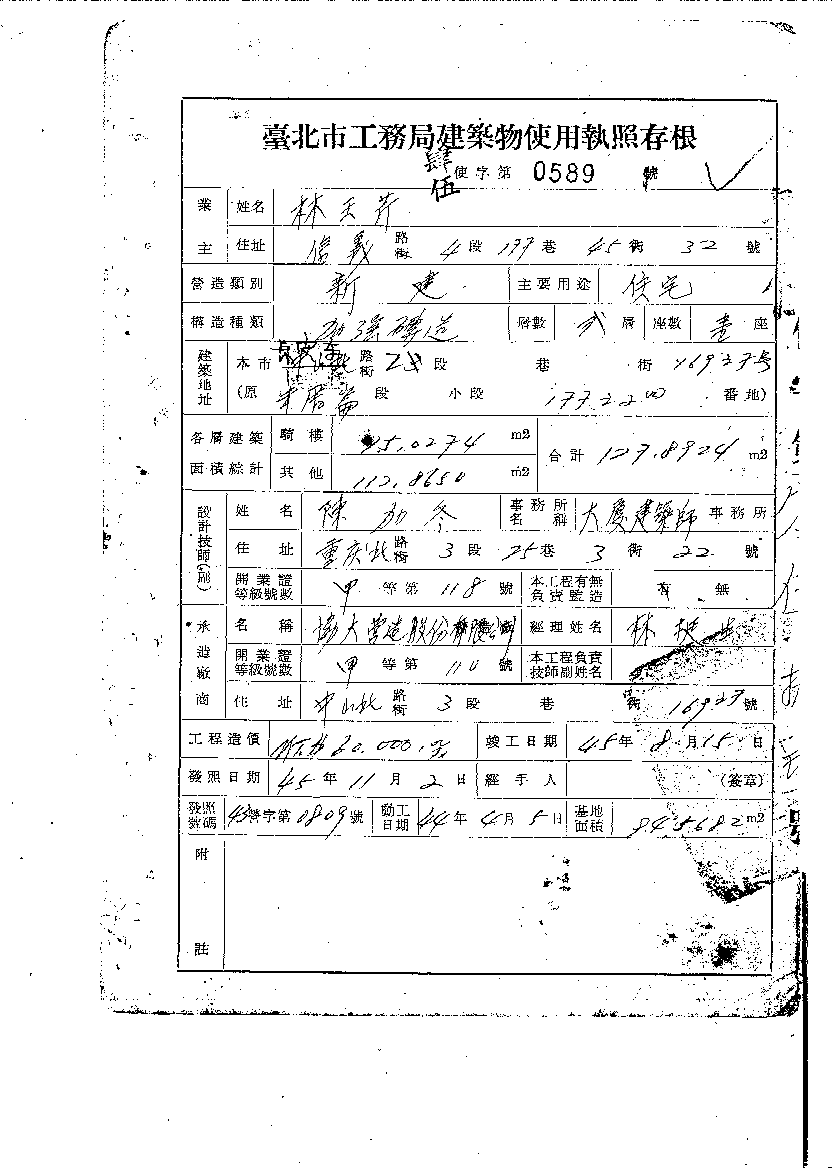 臺北市工務局建築物使用執照存根
肆伍使字第 0589 號
業主 姓名 林玉芹
住址 信義路街 4段 177巷 45街 32號
營造類別 新建 主要用途 住宅
構造種類 加强磚造 層數 弍層 座數 壹座
建築地址 本市 路街 段 巷 街
(原 段 小段 番地)
各層建築面積綜計 騎樓 15.0274 m2 合計 127.8924 m2
其他 112.8650 m2
設計技師(副) 姓名 陳 冬 事務所名科 大慶建築師事務所
住址 重庆北路街 3段 25巷 3街 22號
開業證等級號數 甲等第118號 本工程有無負責監造 有 無
承造廠商 名稱 協大營造股份有限公司 經理姓名 林
開業證等級號數 甲等第110號 本工程負責技師副姓名
住址 中山北路街 3段 巷 街 16927號
工程造價 60.000.元 竣工日期 45年8月15日
發照日期 45年11月2日 經手人 (簽章)
發照號碼 字第0809號 動工日期 44年4月5日 基地面積 84.5682 m2
附註